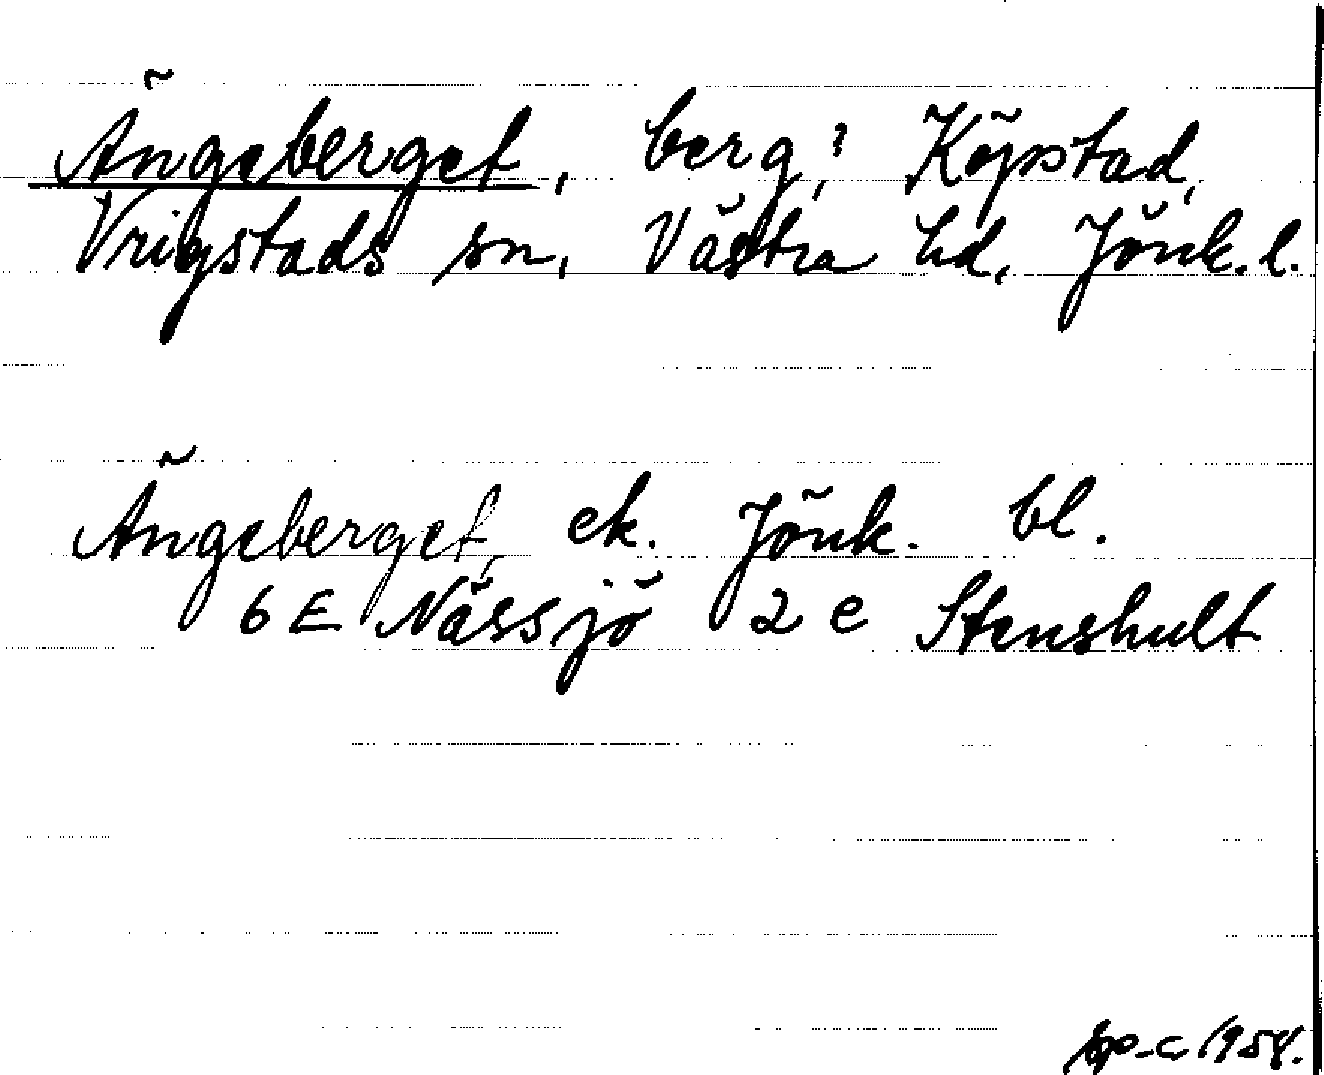 Ängeberget, berg,? Köpstad,
Vrigstads sn, Västra hd, Jönk. l.
Ängeberget, ek. Jönk. bl.
6 E Nässjö 2 e Stenshult
1954.